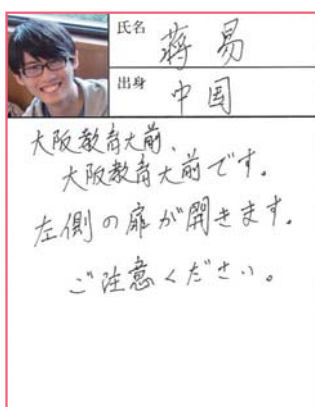 氏名 蒋 易
出身 中国
大阪教育大前、
大阪教育大前です。
左側の扉が開きます。
ご注意ください。